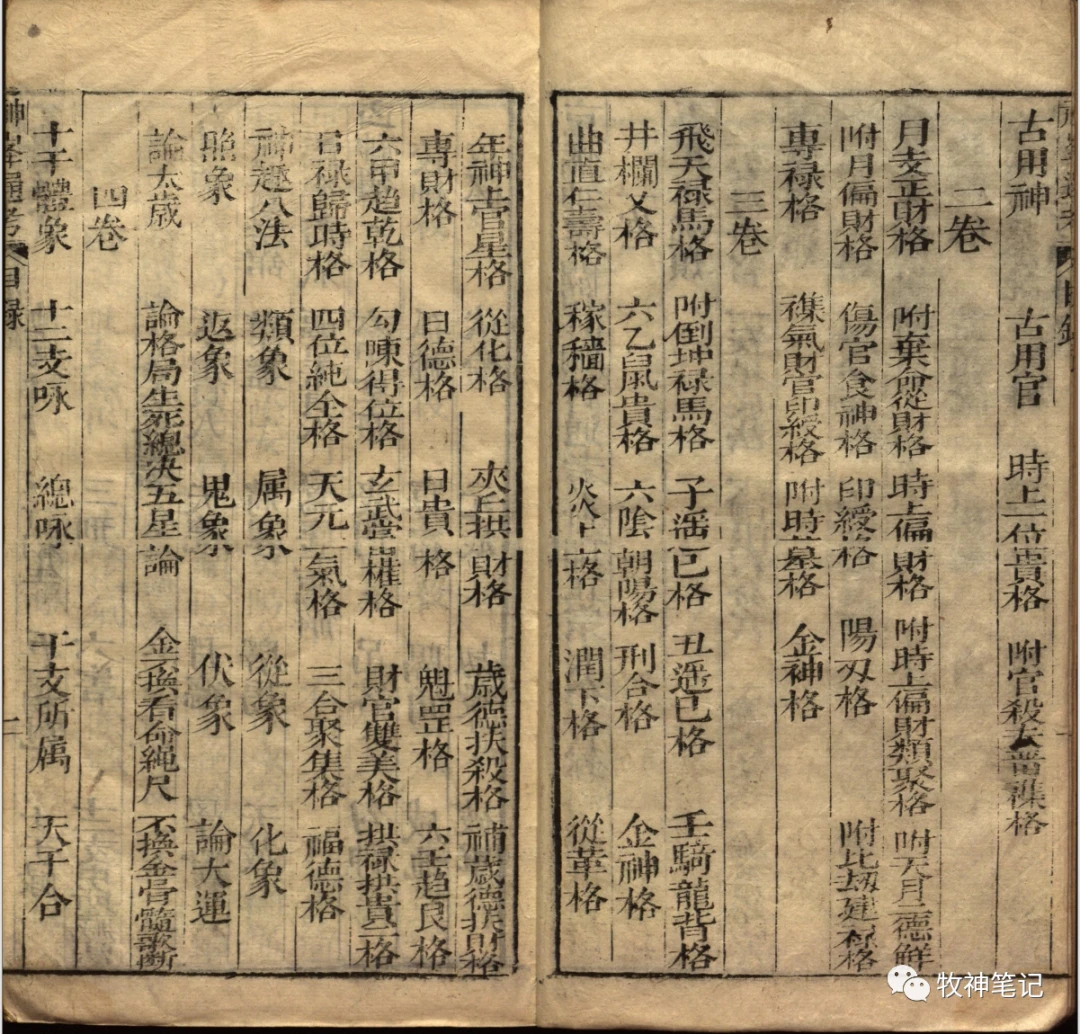 古用神 古用官 時上一位貴格 附官殺去留襍格
二卷
月支正財格 附棄命從財格 時上偏財格 附時上偏財類聚格 附天月二德鮮
附月偏財格 傷官食神格 印綬格 陽刄格 附比刼建祿格
專禄格 襍氣財官印綬格 附時墓格 金神格
三卷
飛天禄馬格 附倒坤禄馬格 子遥巳格 丑遥巳格 壬騎龍背格
井欄义格 六乙鼠貴格 六陰朝陽格 刑合格 金神格
曲直仁壽格 稼穡格 炎上格 潤下格 從革格
年神上官星格 從化格 夾丘拱財格 歳德扶殺格 補歳德扶財格
專財格 日德格 日貴格 魁罡格 六壬趋艮格
六甲趋乾格 勾陳得位格 玄武當權格 財官雙美格 拱禄拱貴格
日禄歸時格 四位純全格 天元一氣格 三合聚集格 福德格
神趣八法 類象 属象 從象 化象
照象 返象 鬼象 伏象 論大運
論太歳 論格局生死總决五星論 金不換看命繩尺 不換金骨髓歌斷
四卷
十干體象 十二支咏 總咏 干支所属 天干合
神峯通考 目錄
牧神笔记